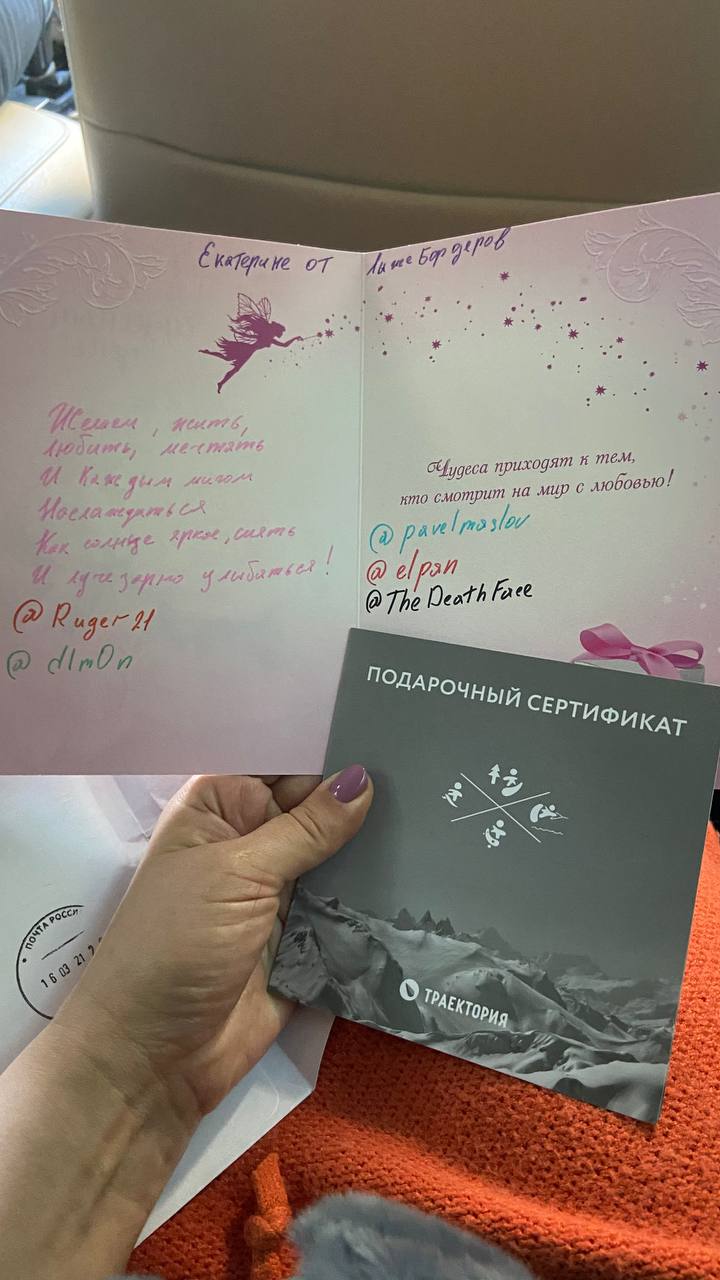 Екатерине от Лиже Бордеров
Желаем, жить,
любить, мечтать
И каждым мигом
Наслаждаться
Как солнце яркое, сиять
И лучезарно улыбаться!
@Ruger21
@dIm0n
Чудеса приходят к тем,
кто смотрит на мир с любовью!
@pavelmaslov
@elpan
@TheDeathFace
ПОДАРОЧНЫЙ СЕРТИФИКАТ
ТРАЕКТОРИЯ
ПОЧТА РОССИ
16 03 21